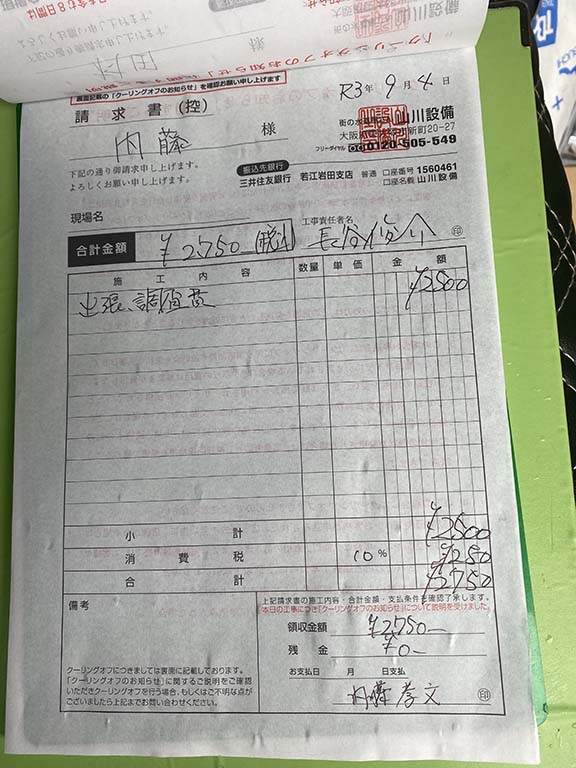 裏面記載の「クーリングオフのお知らせ」を確認お願い申し上げます
R3年 9月 4日
請求書(控)
内藤 様
街の水 山川設備
大阪 新町20-27
フリーダイヤル 0120-505-549
下記の通り御請求申し上げます。
よろしくお願い申し上げます。
振込先銀行
三井住友銀行 若江岩田支店 普通 口座番号 1560461
口座名義 山川設備
現場名
工事責任者名
合計金額 ¥2,750(税込)
長谷 俊介 印
施工内容 数量 単価 金額
出張、調査費 ¥2500
小計 ¥2500
消費税 10% ¥250
合計 ¥2750
備考
クーリングオフにつきましては裏面に記載しております。
「クーリングオフのお知らせ」に関するご説明をご確認
いただきクーリングオフを行う場合、もしくはご不明な点が
ございましたら上記までお問い合わせください。
上記請求書の施工内容・合計金額・支払条件を確認了承します。
本日の工事につき「クーリングオフのお知らせ」について説明を受けました。
領収金額 ¥2,750-
残金 ¥0-
お支払日 月 日支払
内藤 孝文 印